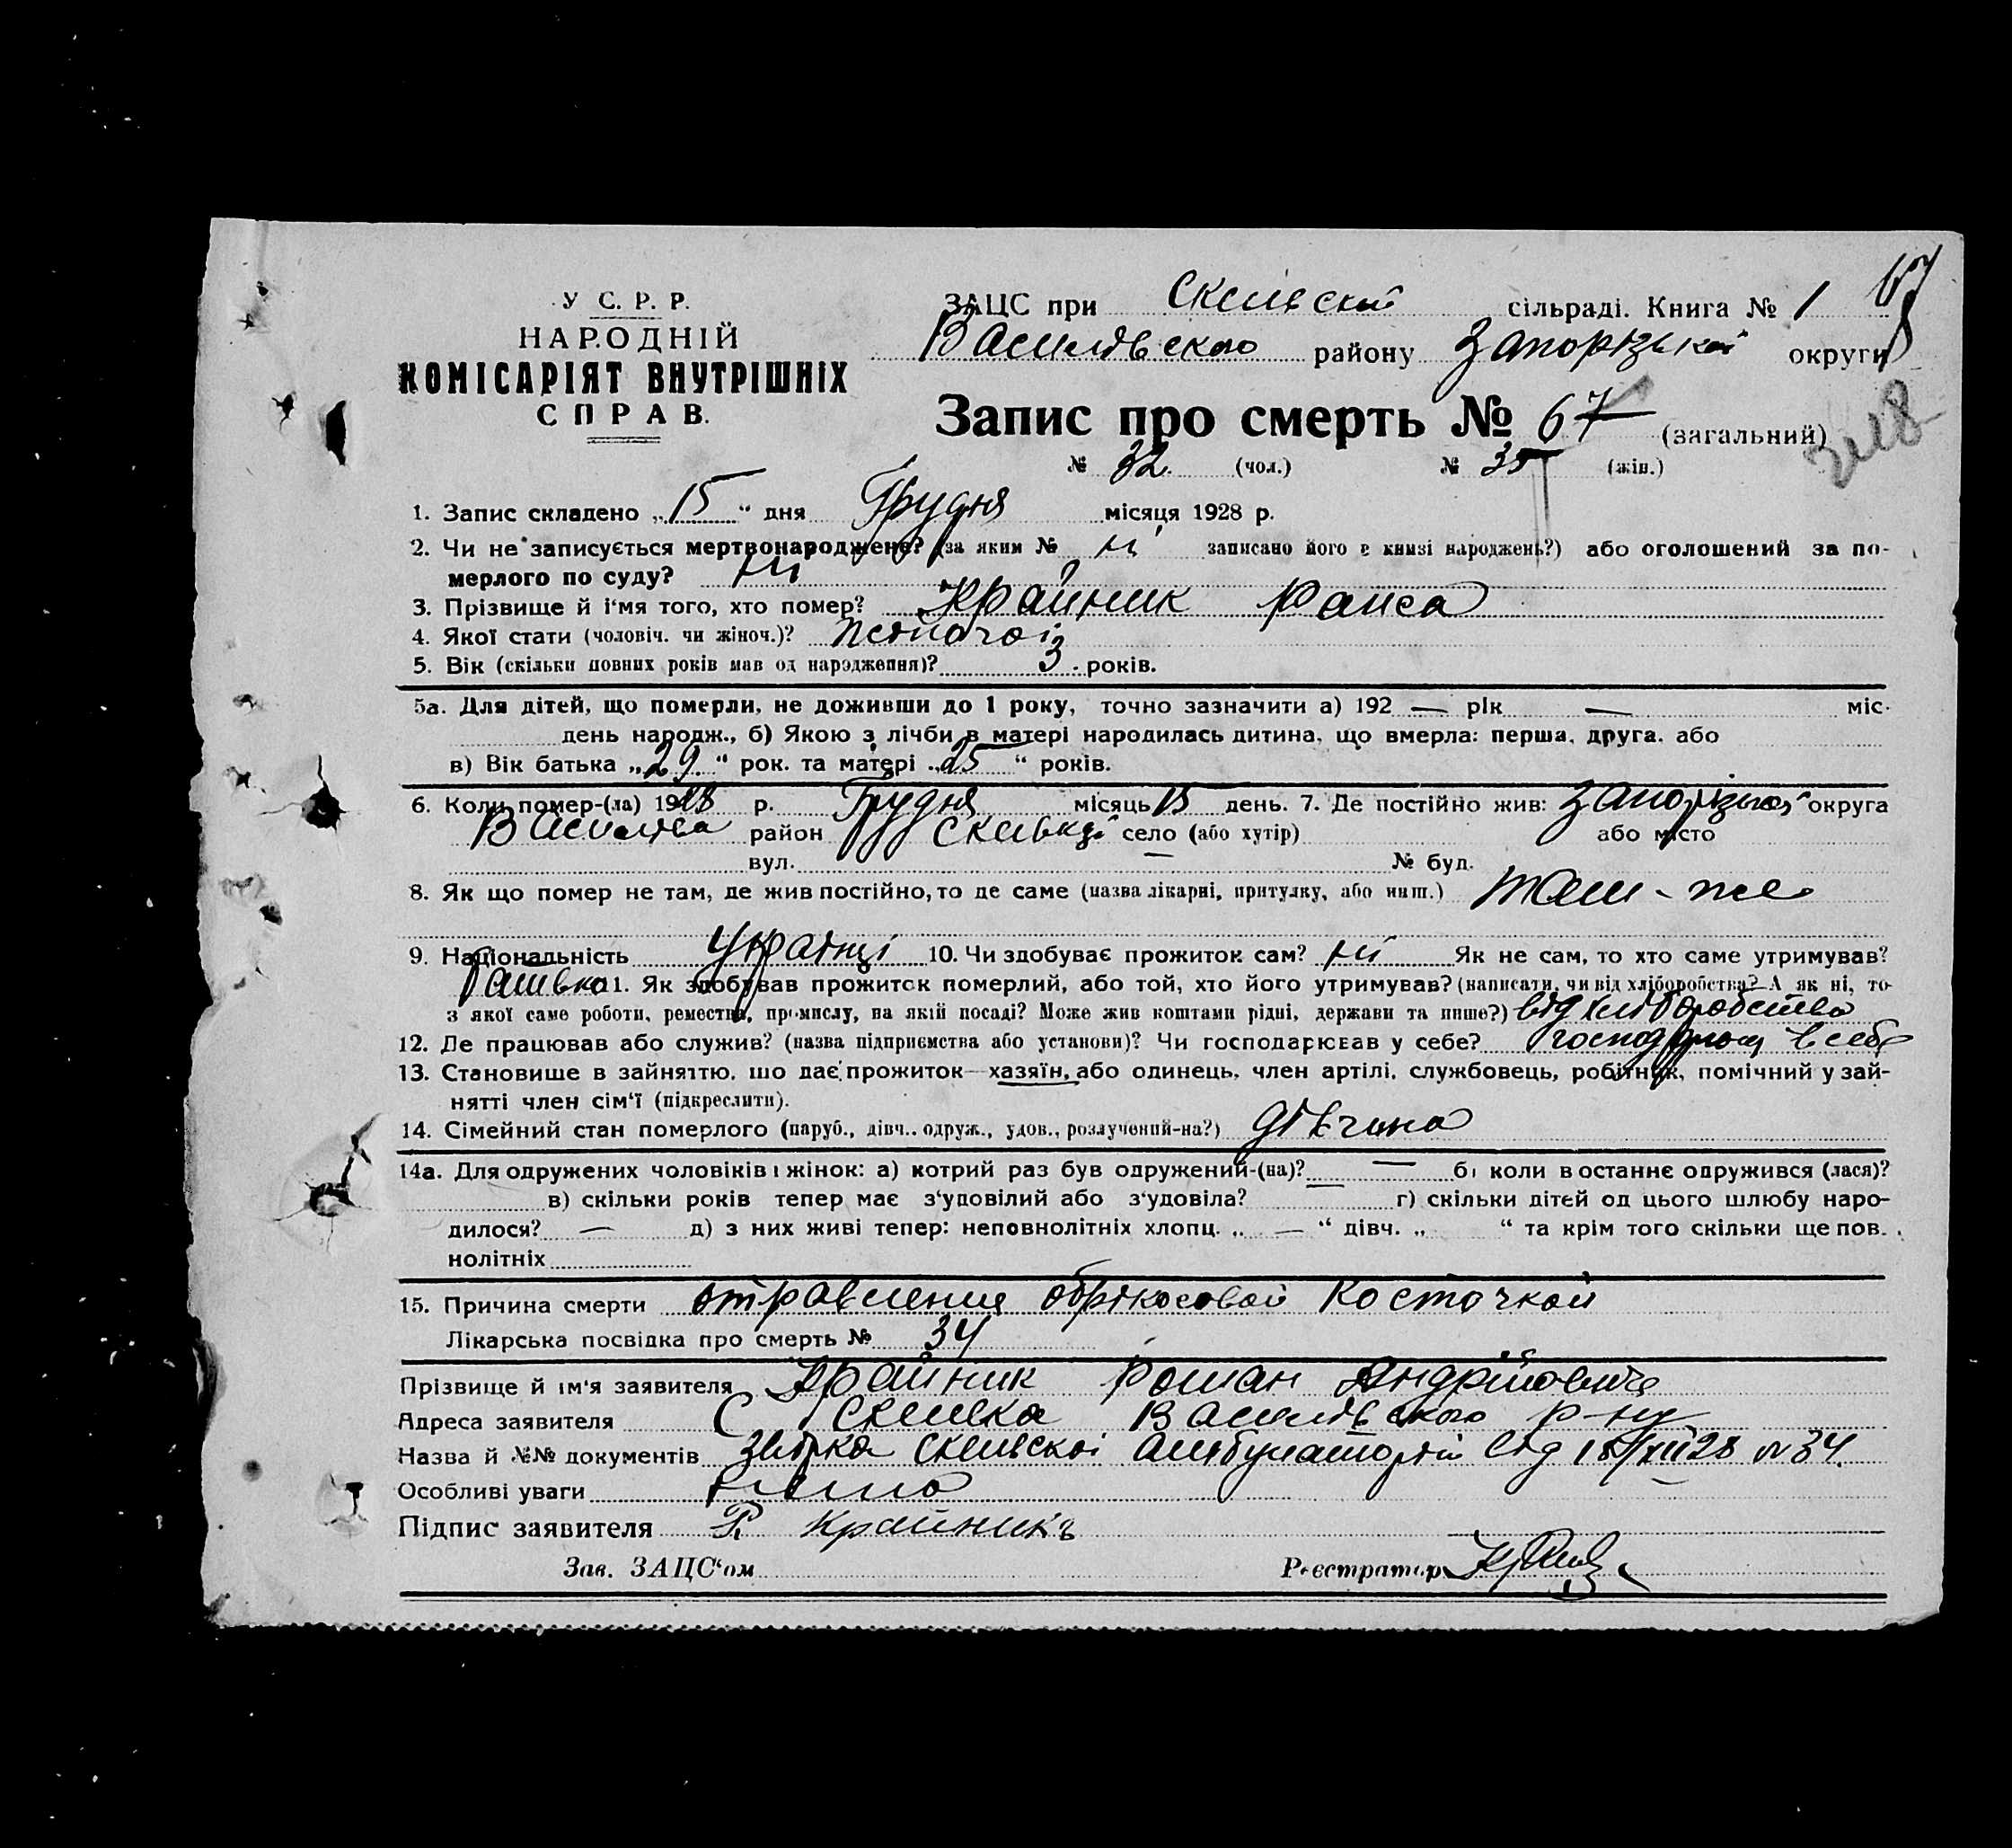 У С. Р. Р.
НАРОДНІЙ
КОМІСАРІЯТ ВНУТРІШНІХ
СПРАВ.
ЗАЦС при Скельскій сільраді. Книга № 1
67
Василівского району Запорізької округи
Запис про смерть № 67 (загальний)
№ 32 (чол.) № 35 (жін.)
1. Запис складено „15“ дня Грудня місяця 1928 р.
2. Чи не записується мертвонароджене? (за яким № ні записано його в книзі народжень?) або оголошений за по-
мерлого по суду? ні
3. Прізвище й і'мя того, хто помер? Крайник Раиса
4. Якої стати (чоловіч. чи жіноч.)?
5. Вік (скільки повних років мав од народження)? 3 років.
5а. Для дітей, що померли, не доживши до 1 року, точно зазначити а) 192 — рік — міс.
день народж., б) Якою з лічби в матері народилась дитина, що вмерла: перша, друга, або
в) Вік батька „29“ рок. та матері „25“ років.
6. Коли помер-(ла) 1928 р. Грудня місяць 15 день. 7. Де постійно жив: Запорізької округа
район село (або хутір) або місто
вул. — № буд.
8. Як що помер не там, де жив постійно, то де саме (назва лікарні, притулку, або инш.) там-же
9. Національність Украінці 10. Чи здобуває прожиток сам? ні Як не сам, то хто саме утримував?
батько 11. Як здобував прожиток померлий, або той, хто його утримував? (написати, чи від хліборобства? А як ні, то
з якої саме роботи, ремества, промислу, на якій посаді? Може жив коштами рідні, держави та инше?) від хліборобства
12. Де працював або служив? (назва підприємства або установи)? Чи господарював у себе? в себе
13. Становище в зайняттю, що дає прожиток—хазяїн, або одинець, член артілі, службовець, робітник, помічний у зай-
нятті член сім'ї (підкреслити).
14. Сімейний стан померлого (паруб., дівч., одруж., удов., розлучений-на?) дівчина
14а. Для одружених чоловіків і жінок: а) котрий раз був одружений-(на)? — б) коли в останнє одружився (лася)?
в) скільки років тепер має з'удовілий або з'удовіла? — г) скільки дітей од цього шлюбу наро-
дилося? — д) з них живі тепер: неповнолітніх хлопц. „ — “ дівч. „ “ та крім того скільки ще пов.
нолітніх
15. Причина смерти отравления обрікосовой косточкой
Лікарська посвідка про смерть № 34
Прізвище й ім'я заявителя Крайник Роман Андрійовичь
Адреса заявителя С Скелька Василівского р-ну
Назва й №№ документів Скельскоі Амбулаторіи від 15/XII 28 № 34.
Особливі уваги нема
Підпис заявителя Р. Крайникъ
Зав. ЗАЦС'ом Реєстратор